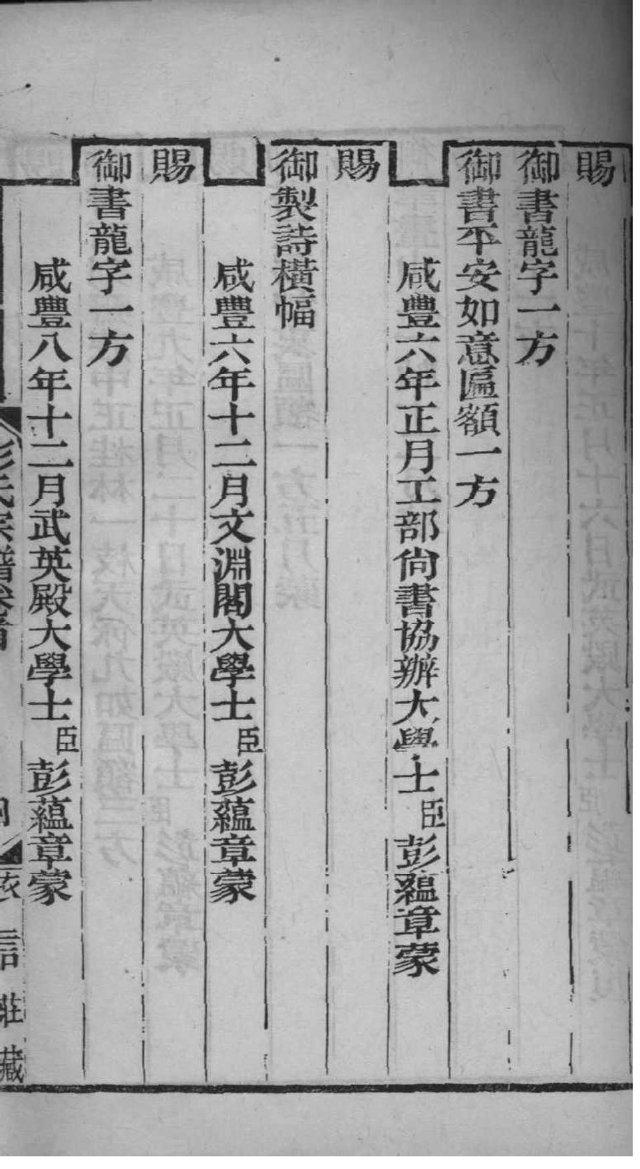 賜
御書龍字一方
御書平安如意匾額一方
咸豐六年正月工部尙書協辦大學士臣彭蘊章蒙
賜
御製詩橫幅
咸豐六年十二月文淵閣大學士臣彭蘊章蒙
賜
御書龍字一方
咸豐八年十二月武英殿大學士臣彭蘊章蒙
彭氏宗譜卷首
莊藏